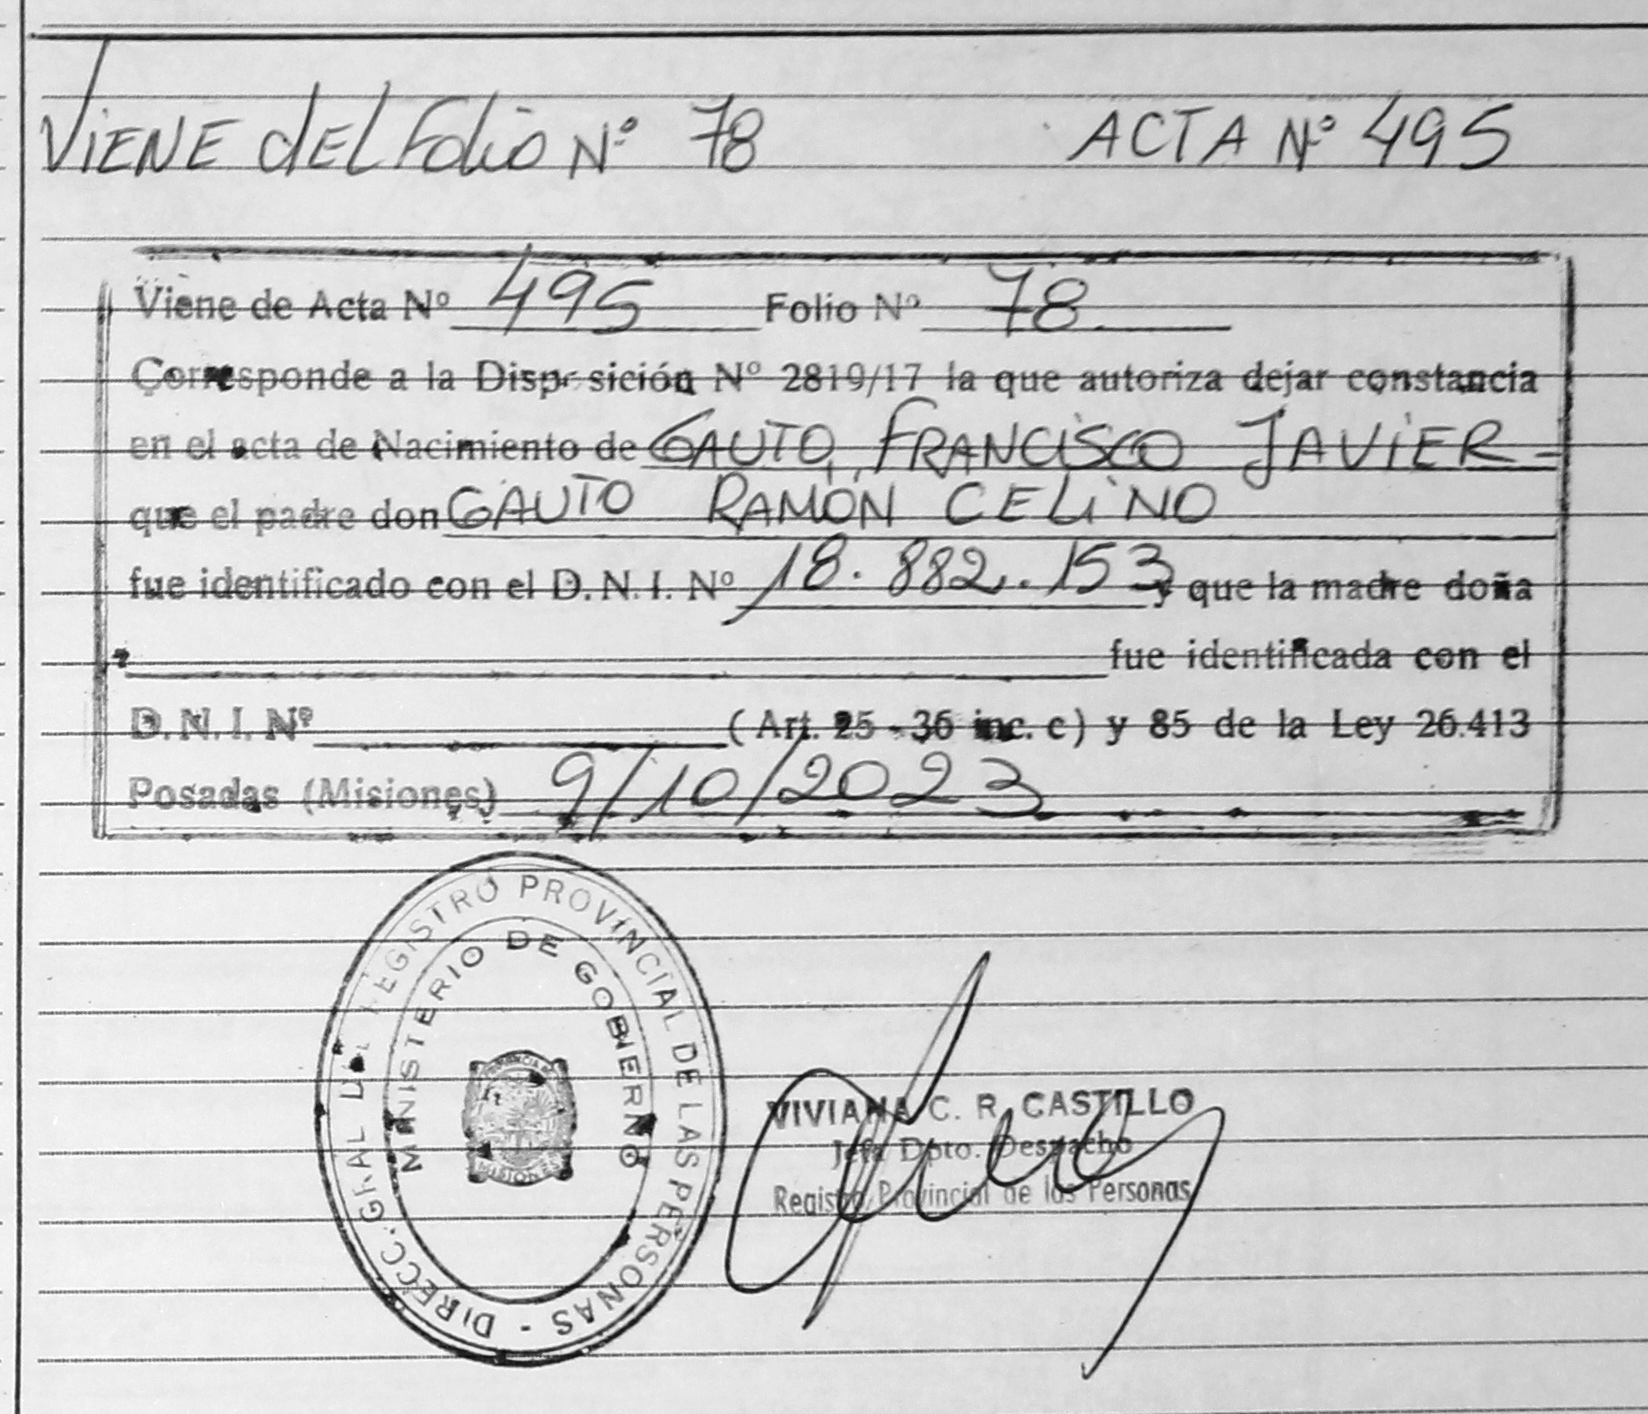 VIENE dEL Folio N° 78 ACTA N° 495
Viene de Acta Nº 495 Folio Nº 78
Corresponde a la Disposición Nº 2819/17 la que autoriza dejar constancia
en el acta de Nacimiento de GAUTO, FRANCISCO JAVIER =
que el padre don GAUTO RAMÓN CELINO
fue identificado con el D. N. I. Nº 18.882.153 y que la madre doña
fue identificada con el
D. N. I. Nº (Art. 25 - 36 inc. c) y 85 de la Ley 26.413
Posadas (Misiones) 9/10/2023
DIRECC. GRAL DEL REGISTRO PROVINCIAL DE LAS PERSONAS -
MINISTERIO DE GOBIERNO
PROVINCIA DE
MISIONES
VIVIANA C. R. CASTILLO
Jefa Dpto. Despacho
Registro Provincial de las Personas